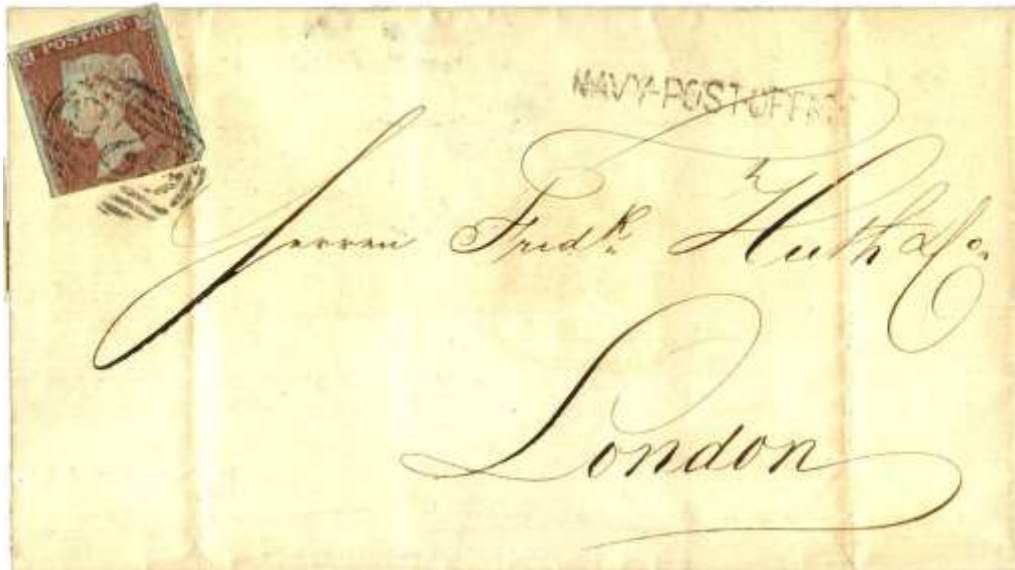 POSTAGE
NAVY-POST-OFFICE
Herren Fredk. Huth & Co.
London